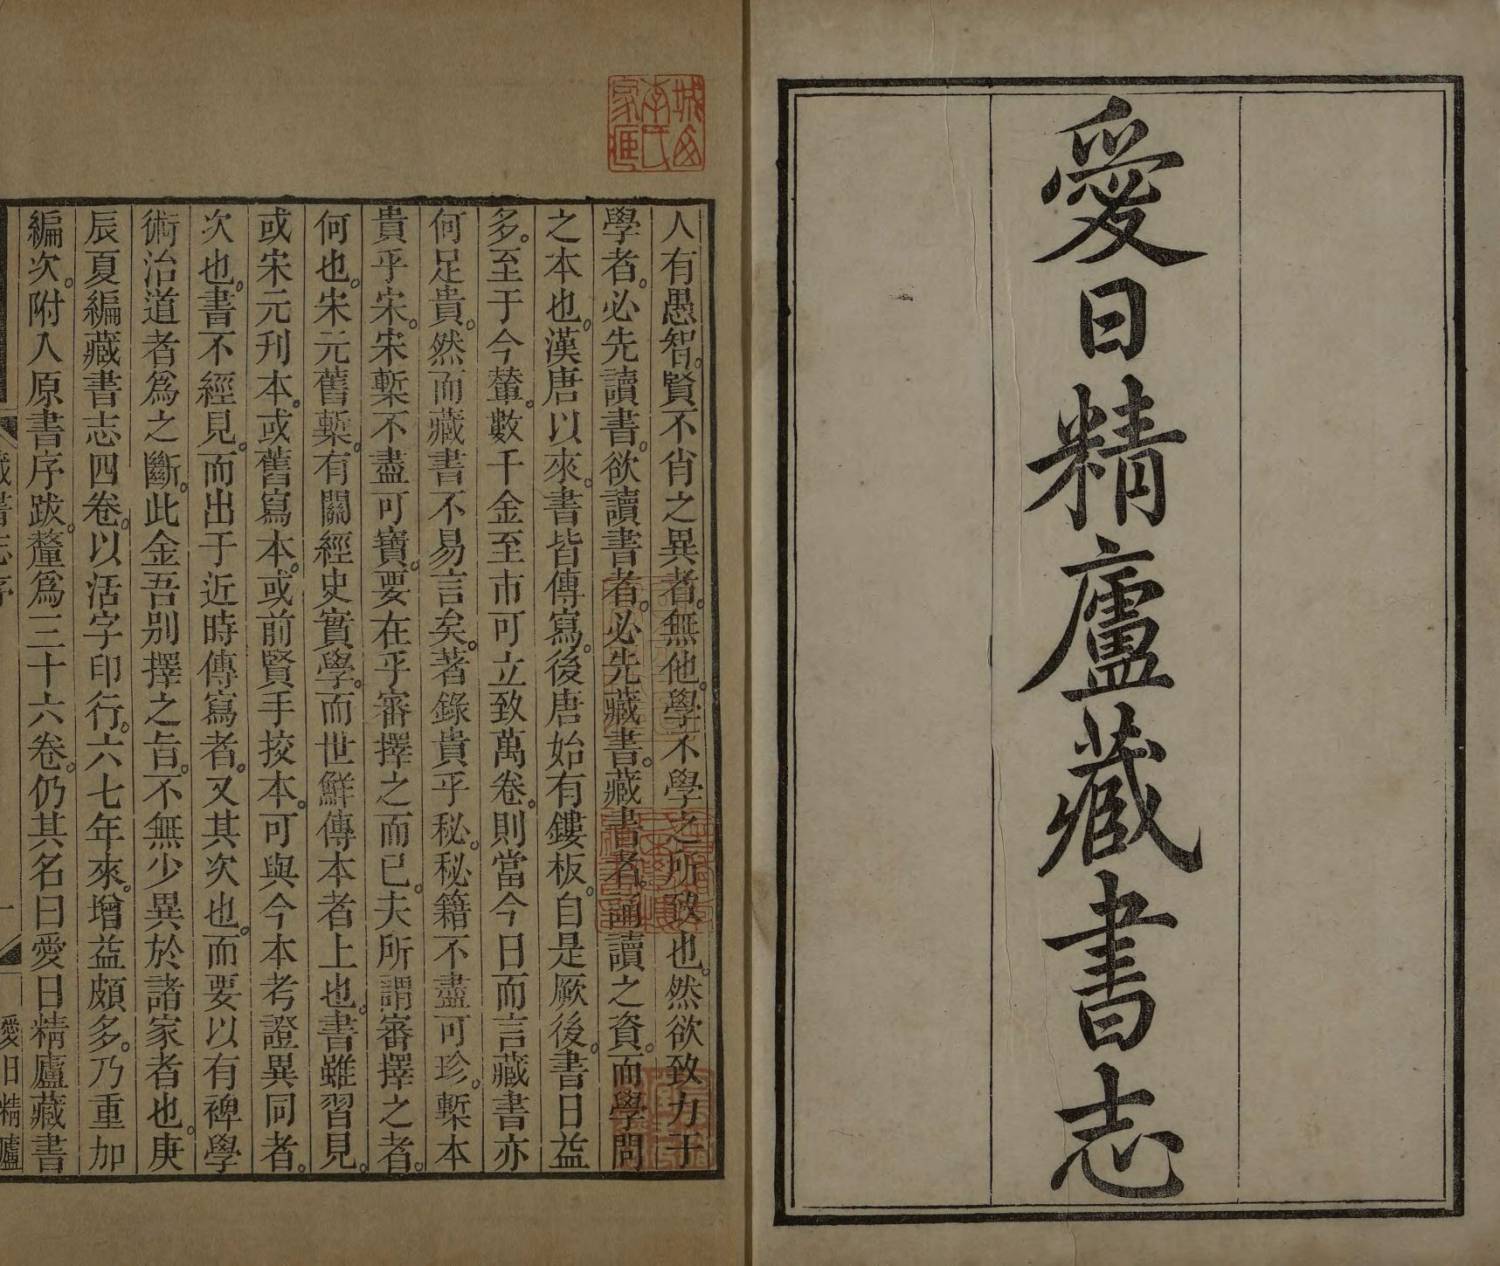 愛日精廬藏書志
人有愚智。賢不肖之異者。無他。學不學之所致也。然欲致力于
學者。必先讀書。欲讀書者。必先藏書。藏書者。誦讀之資。而學問
之本也。漢唐以來。書皆傳寫。後唐始有鏤板。自是厥後。書日益
多。至于今輦。數千金至市可立致萬卷。則當今日而言藏書亦
何足貴。然而藏書不易言矣。著錄貴乎秘。秘籍不盡可珍。槧本
貴乎宋。宋槧不盡可寶。要在乎審擇之而已。夫所謂審擇之者。
何也。宋元舊槧。有關經史實學。而世鮮傳本者上也。書雖習見。
或宋元刊本。或舊寫本。或前賢手挍本。可與今本考證異同者。
次也。書不經見。而出于近時傳寫者。又其次也。而要以有裨學
術治道者爲之斷。此金吾别擇之旨。不無少異於諸家者也。庚
辰夏編藏書志四卷。以活字印行。六七年來。增益頗多。乃重加
編次。附入原書序跋。釐爲三十六卷。仍其名曰愛日精廬藏書
藏書志序
一
愛日精廬